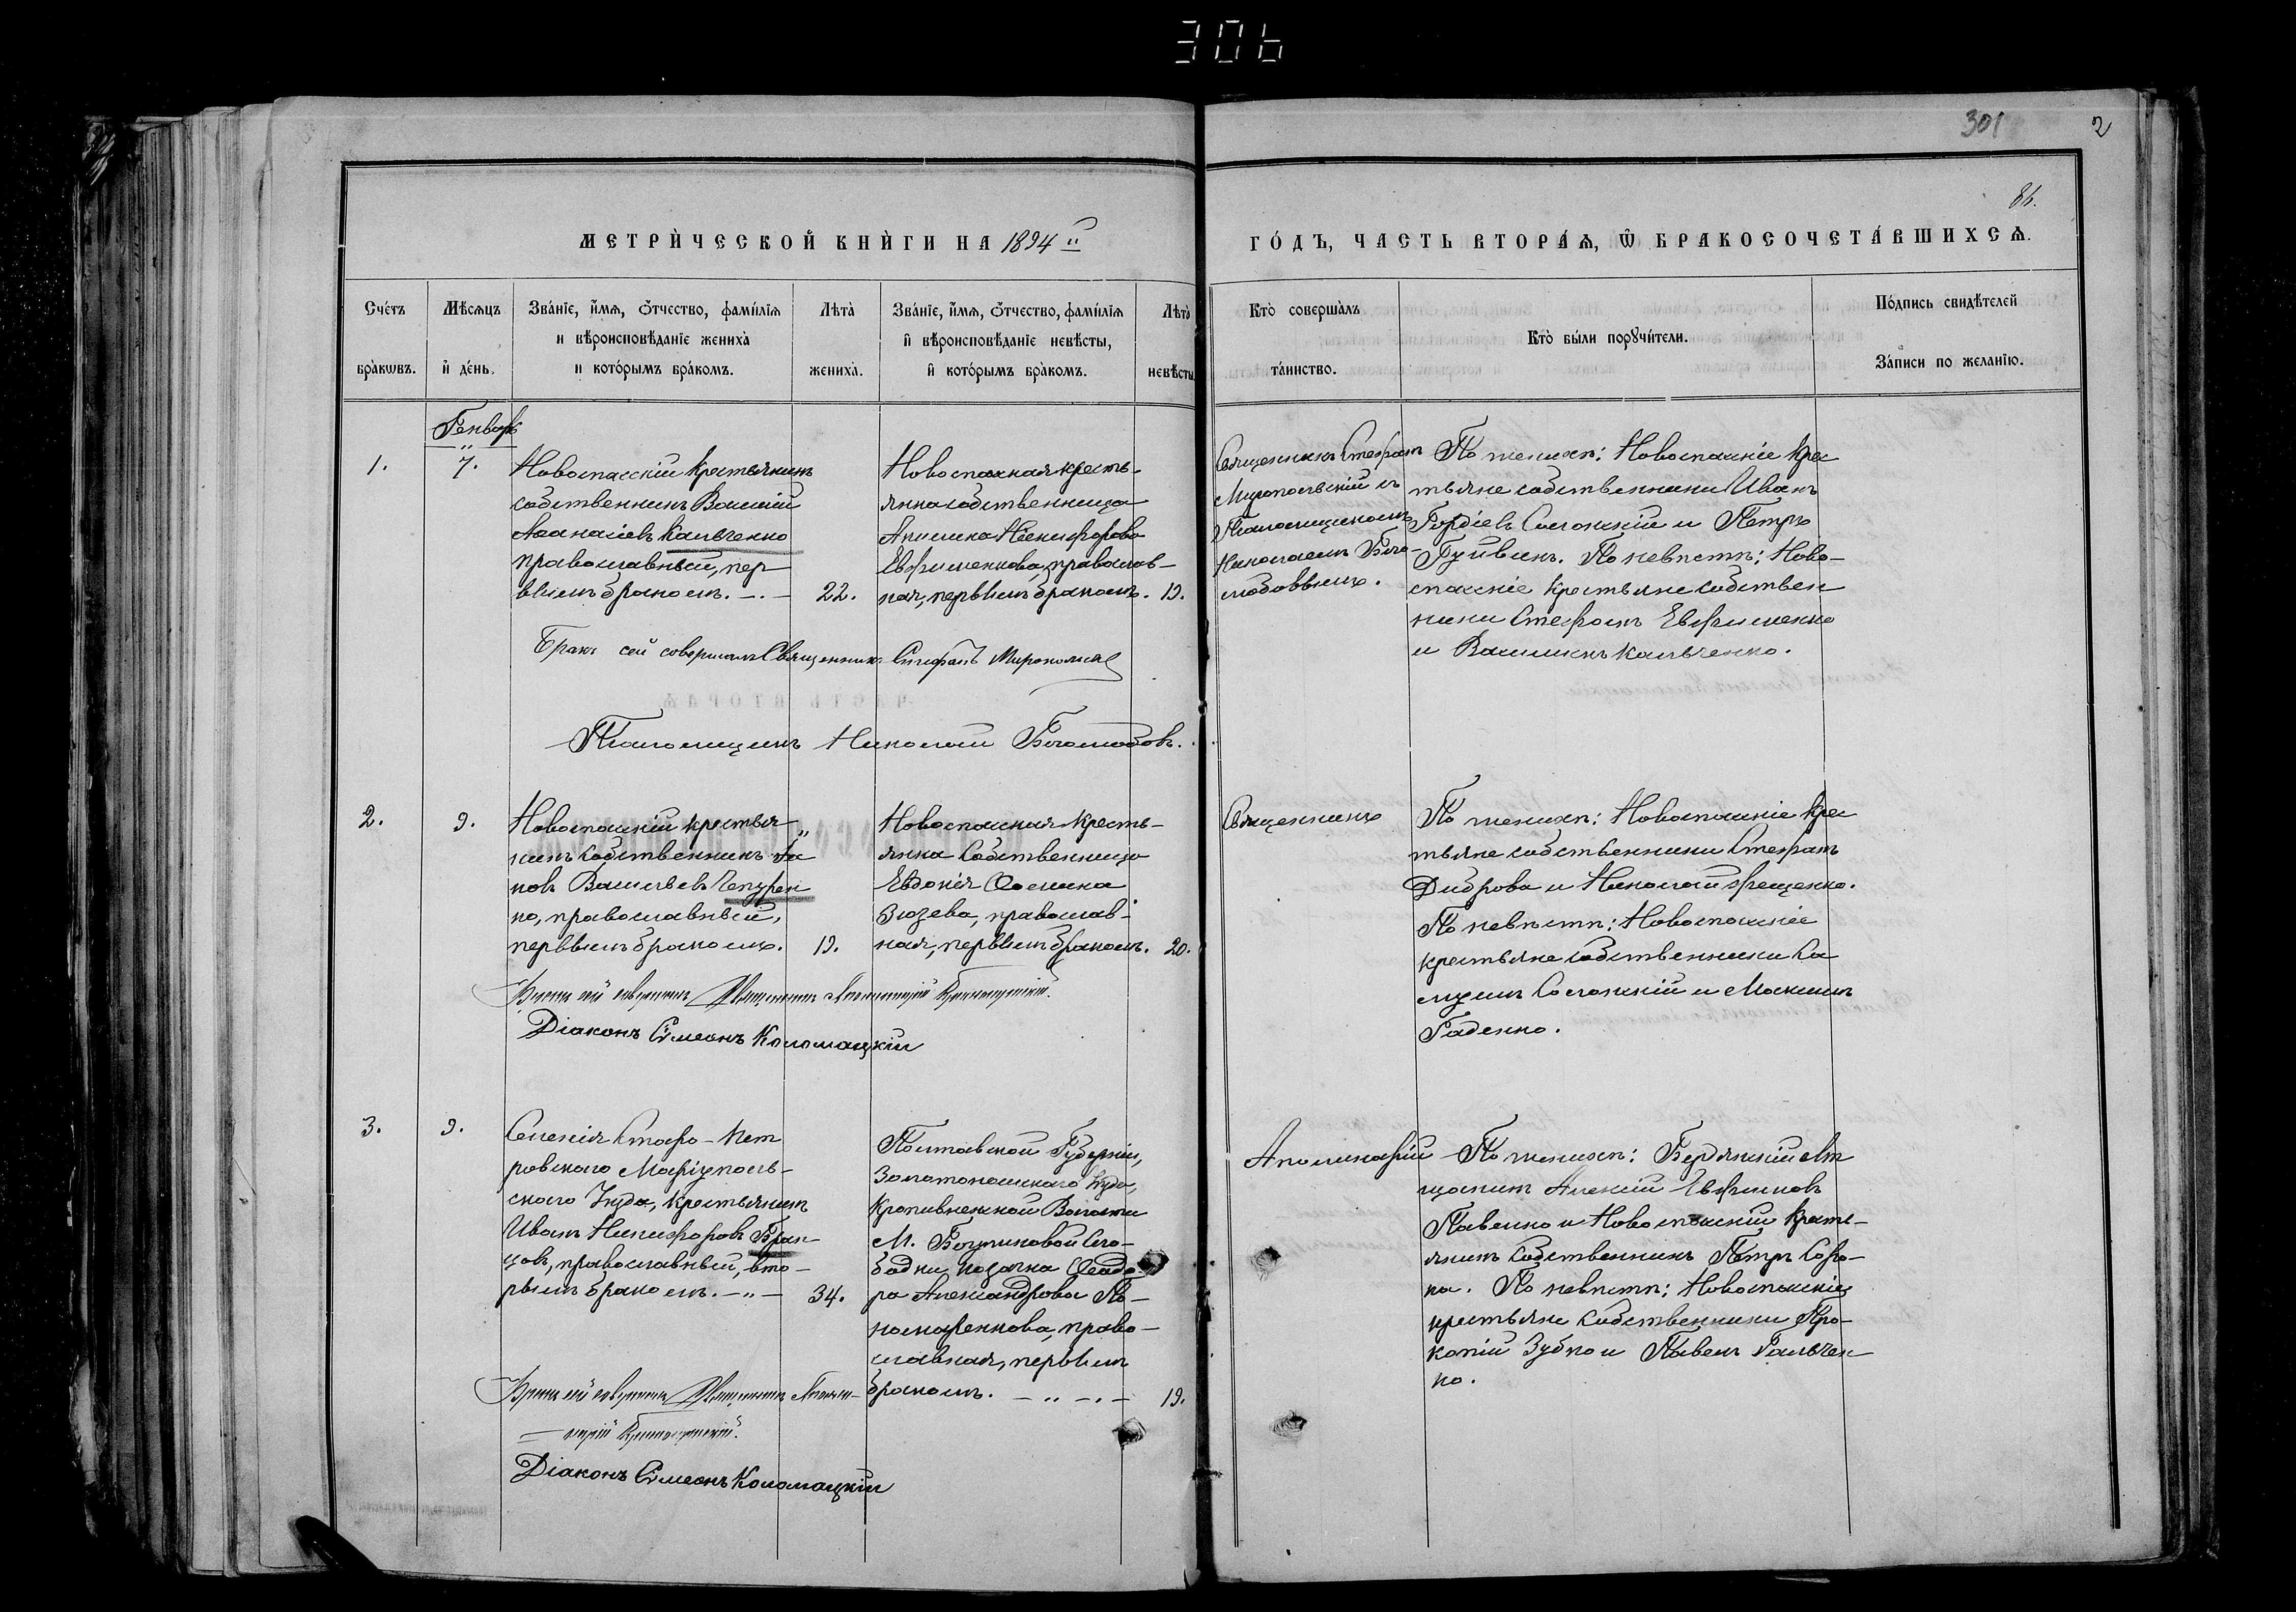 306
301 2
86.
МЕТРИ́ЧЕСКОЙ КНИ́ГИ НА 1894 й
ГО́ДЪ, ЧАСТЬ ВТОРА́Ѧ, Ѡ҆ БРАКОСОЧЕТА́ВШИХСѦ.
Сче́тъ бра́кѡвъ.
Мѣ́сѧцъ и҆ де́нь.
Зва́нїе, и҆́мѧ, ѻ҆́тчество, фами́лїѧ
и вѣроисповѣ́данїе жениха̀
и кото́рымъ бра́комъ.
Лѣта̀ жениха̀.
Зва́нїе, и҆́мѧ, ѻ҆́тчество, фами́лїѧ
и҆ вѣроисповѣ́данїе невѣ́сты,
и҆ кото́рымъ бра́комъ.
Лѣта̀ невѣ́сты.
Кто̀ соверша́лъ та́инство.
Кто̀ бы́ли порꙋчи́тели.
По́дпись свидѣ́телей
За́писи по жела́нїю.
Генварь
1.
7.
Новоспасскій крестьянинъ
собственникъ Василій
Аѳанасіевъ Кальченко
православный, пер
вымъ бракомъ. -.-
22.
Новоспасская кресть-
янка собственница
Акилина Никифорова
Евфименкова, православ-
ная, первымъ бракомъ.
19.
Священникъ Стефанъ
Миропольскій съ
Псаломщикомъ
Николаемъ Бого-
любовымъ.
По женихѣ: Новоспасскіе крес
тьяне собственники Иванъ
Гордіевъ Слонскій и Петръ
Гуйвикъ. По невѣстѣ: Ново-
спасскіе крестьяне собствен
ники Стефанъ Евфименко
и Василій Кальченко.
Бракъ сей совершалъ Священникъ Стефанъ Миропольскій
Псаломщикъ Николай Боголюбовъ.
2.
9.
Новоспасскій крестья
нинъ собственникъ Іа
ковъ Васильевъ Чепурен
ко, православный,
первымъ бракомъ.
19.
Новоспасская кресть-
янка собственница
Евдокія Ѳомина
Зюзева, православ-
ная, первымъ бракомъ.
20.
Священникъ
По женихѣ: Новоспасскіе крес
тьяне собственники Стефанъ
Диброва и Николай Ефещенко.
По невѣстѣ: Новоспасскіе
крестьяне собственники Са
муилъ Слонскій и Максимъ
Гаденко.
Бракъ сей совершалъ Священникъ Аполлинарій
Діаконъ Сѵмеонъ Коломацкій
3.
9.
Селенія Старо-Пет
ровскаго Маріуполь-
скаго Уѣзда, крестьянинъ
Иванъ Никифоровъ Бран
цовъ, православный, вто-
рымъ бракомъ. -"-
34.
Полтавской Губерніи,
Золотоношскаго Уѣзда,
Кропивненской Волости
М. Богушковой Сло-
бодки козачка Ѳеодо-
ра Александрова По-
номаренкова, право-
славная, первымъ
бракомъ. - " -.-
19.
Аполинарій
По женихѣ: Бердянскій мѣ
щанинъ Алексій Евфимовъ
Павенко и Новоспасскій крест-
янинъ собственникъ Петръ Соро-
ка. По невѣстѣ: Новоспасскіе
крестьяне собственники Про-
копій Зубко и Павелъ Гальчен
ко.
Бракъ сей совершалъ Священникъ Аполли-
нарій
Діаконъ Сѵмеонъ Коломацкій